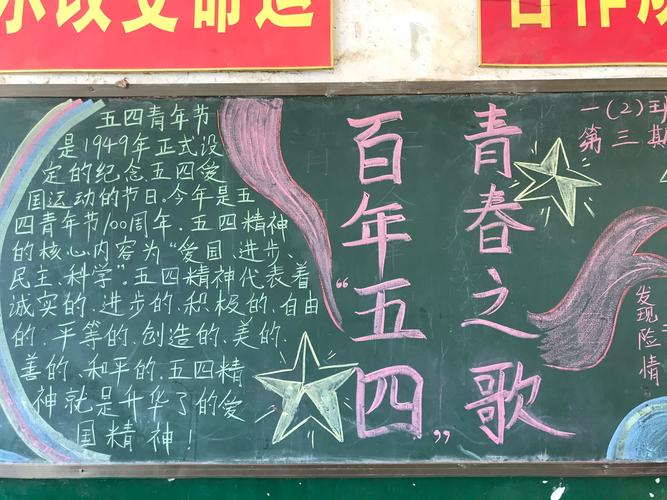 改变命运
合作
五四青年节
是1949年正式设
定的纪念五四爱
国运动的节日。今年是五
四青年节100周年。五四精神
的核心内容为“爱国、进步、
民主、科学”。五四精神代表着
诚实的、进步的、积极的、自由
的、平等的、创造的、美的、
善的、和平的、五四精
神就是升华了的爱
国精神！
青春之歌
百年“五四”
一(2)
第三期
发现险情